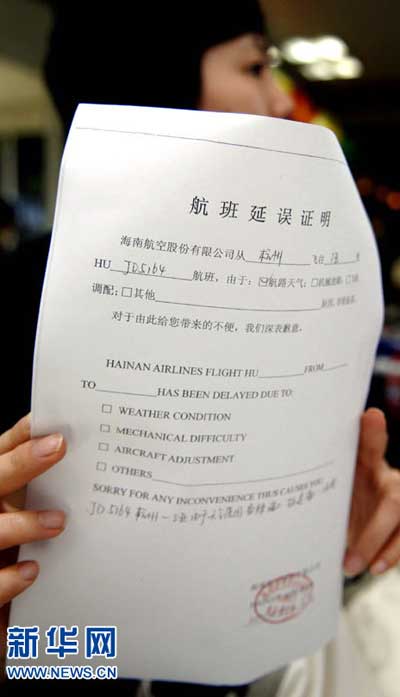 航班延误证明
海南航空股份有限公司从 杭州 飞往
HU JD5164 航班，由于：☑航路天气；□机械故障；□飞机
调配；□其他
对于由此给您带来的不便，我们深表歉意。
HAINAN AIRLINES FLIGHT HU FROM
TO HAS BEEN DELAYED DUE TO:
□ WEATHER CONDITION
□ MECHANICAL DIFFICULTY
□ AIRCRAFT ADJUSTMENT
□ OTHERS
SORRY FOR ANY INCONVENIENCE THUS CAUSES YOU
JD5164 杭州一三亚 由于天气原因
新华网
WWW.NEWS.CN